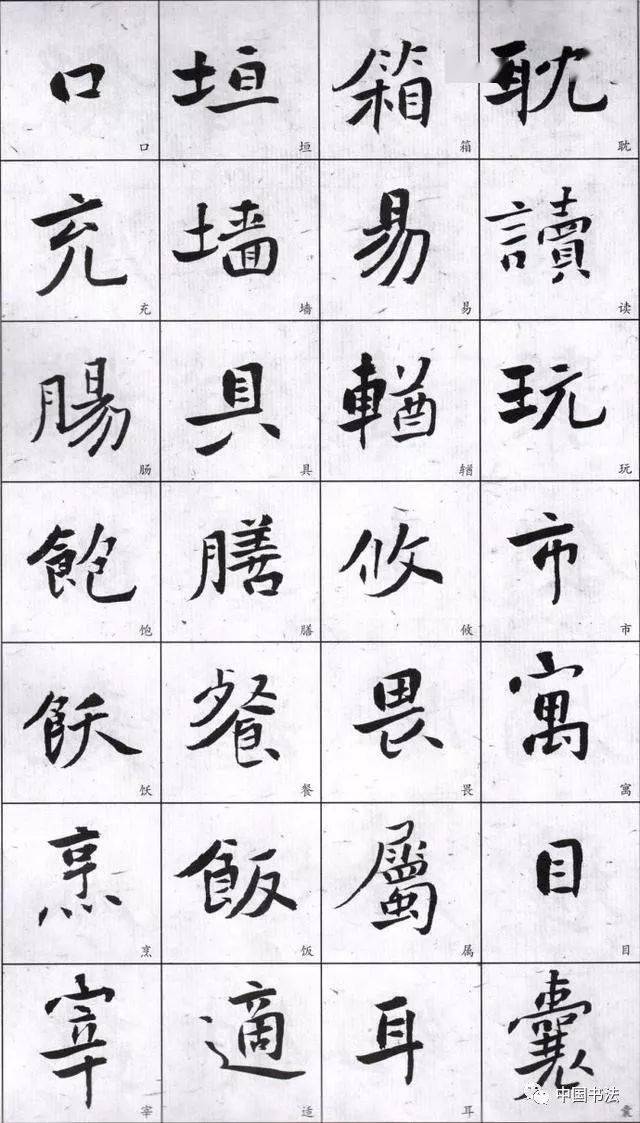 耽讀玩市寓目囊
箱易輶攸畏屬耳
垣墙具膳餐飯適
口充腸飽飫烹宰
耽读玩市寓目囊
箱易𬨎攸畏属耳
垣墙具膳餐饭适
口充肠饱饫烹宰
中国书法